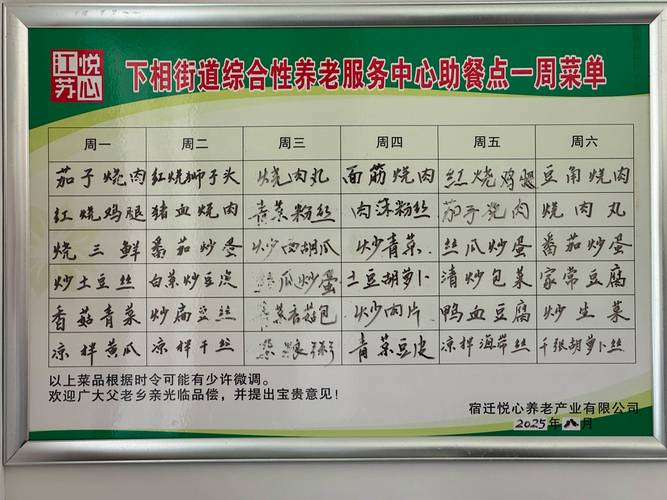 悦心
江苏
下相街道综合性养老服务中心助餐点一周菜单
周一 周二 周三 周四 周五 周六
茄子烧肉 红烧狮子头 烧肉丸 面筋烧肉 红烧鸡腿 豆角烧肉
红烧鸡腿 猪血烧肉 青菜粉丝 肉沫粉丝 茄子烧肉 烧肉丸
烧三鲜 番茄炒蛋 炒西胡瓜 炒青菜 丝瓜炒蛋 番茄炒蛋
炒土豆丝 白菜炒豆皮 丝瓜炒蛋 土豆胡萝卜 清炒包菜 家常豆腐
香菇青菜 炒扁豆丝 香菇包 炒肉片 鸭血豆腐 炒生菜
凉拌黄瓜 凉拌干丝 青菜豆皮 凉拌海带丝 千张胡萝卜丝
以上菜品根据时令可能有少许微调。
欢迎广大父老乡亲光临品偿，并提出宝贵意见！
宿迁悦心养老产业有限公司
2025年八月